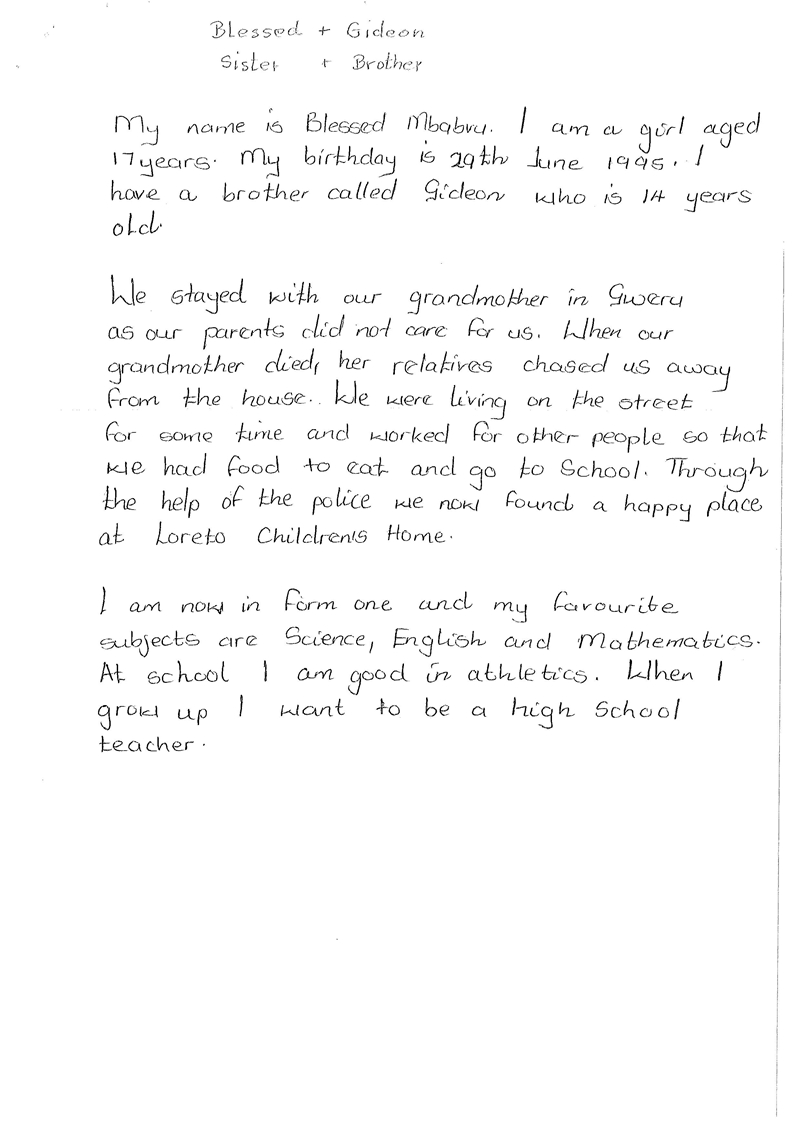 Blessed + Gideon
Sister + Brother
My name is Blessed Mbabvu. I am a girl aged
17 years. My birthday is 29th June 1995. I
have a brother called Gideon who is 14 years
old.
We stayed with our grandmother in Gweru
as our parents did not care for us. When our
grandmother died, her relatives chased us away
from the house. We were living on the street
for some time and worked for other people so that
we had food to eat and go to School. Through
the help of the police we now found a happy place
at Loreto Children's Home.
I am now in form one and my favourite
subjects are Science, English and Mathematics.
At school I am good in athletics. When I
grow up I want to be a high School
teacher.